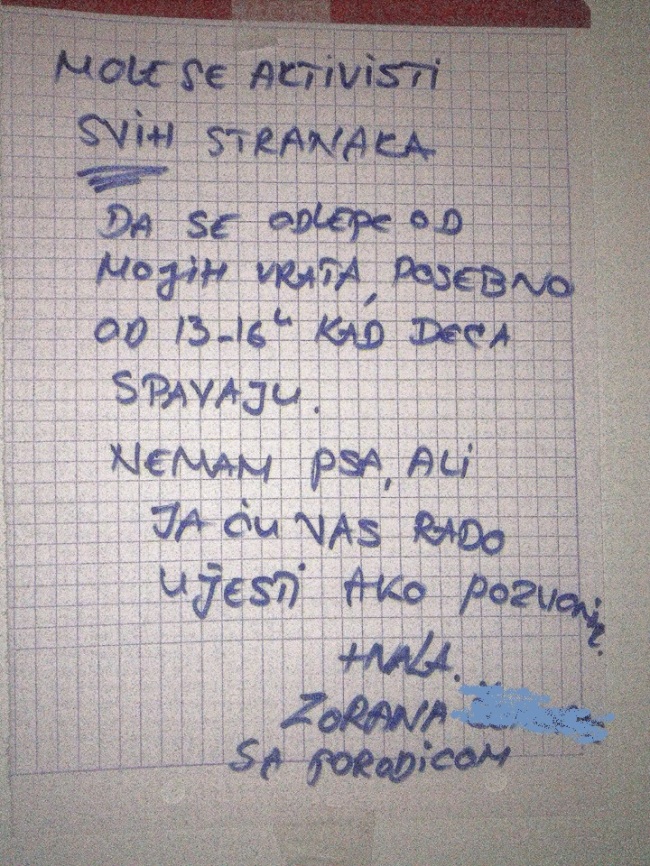 MOLE SE AKTIVISTI
SVIH STRANAKA
DA SE ODLEPE OD
MOJIH VRATA, POSEBNO
OD 13-16h KAD DECA
SPAVAJU.
NEMAM PSA, ALI
JA ĆU VAS RADO
UJESTI AKO POZVONITE.
HVALA.
ZORANA
SA PORODICOM